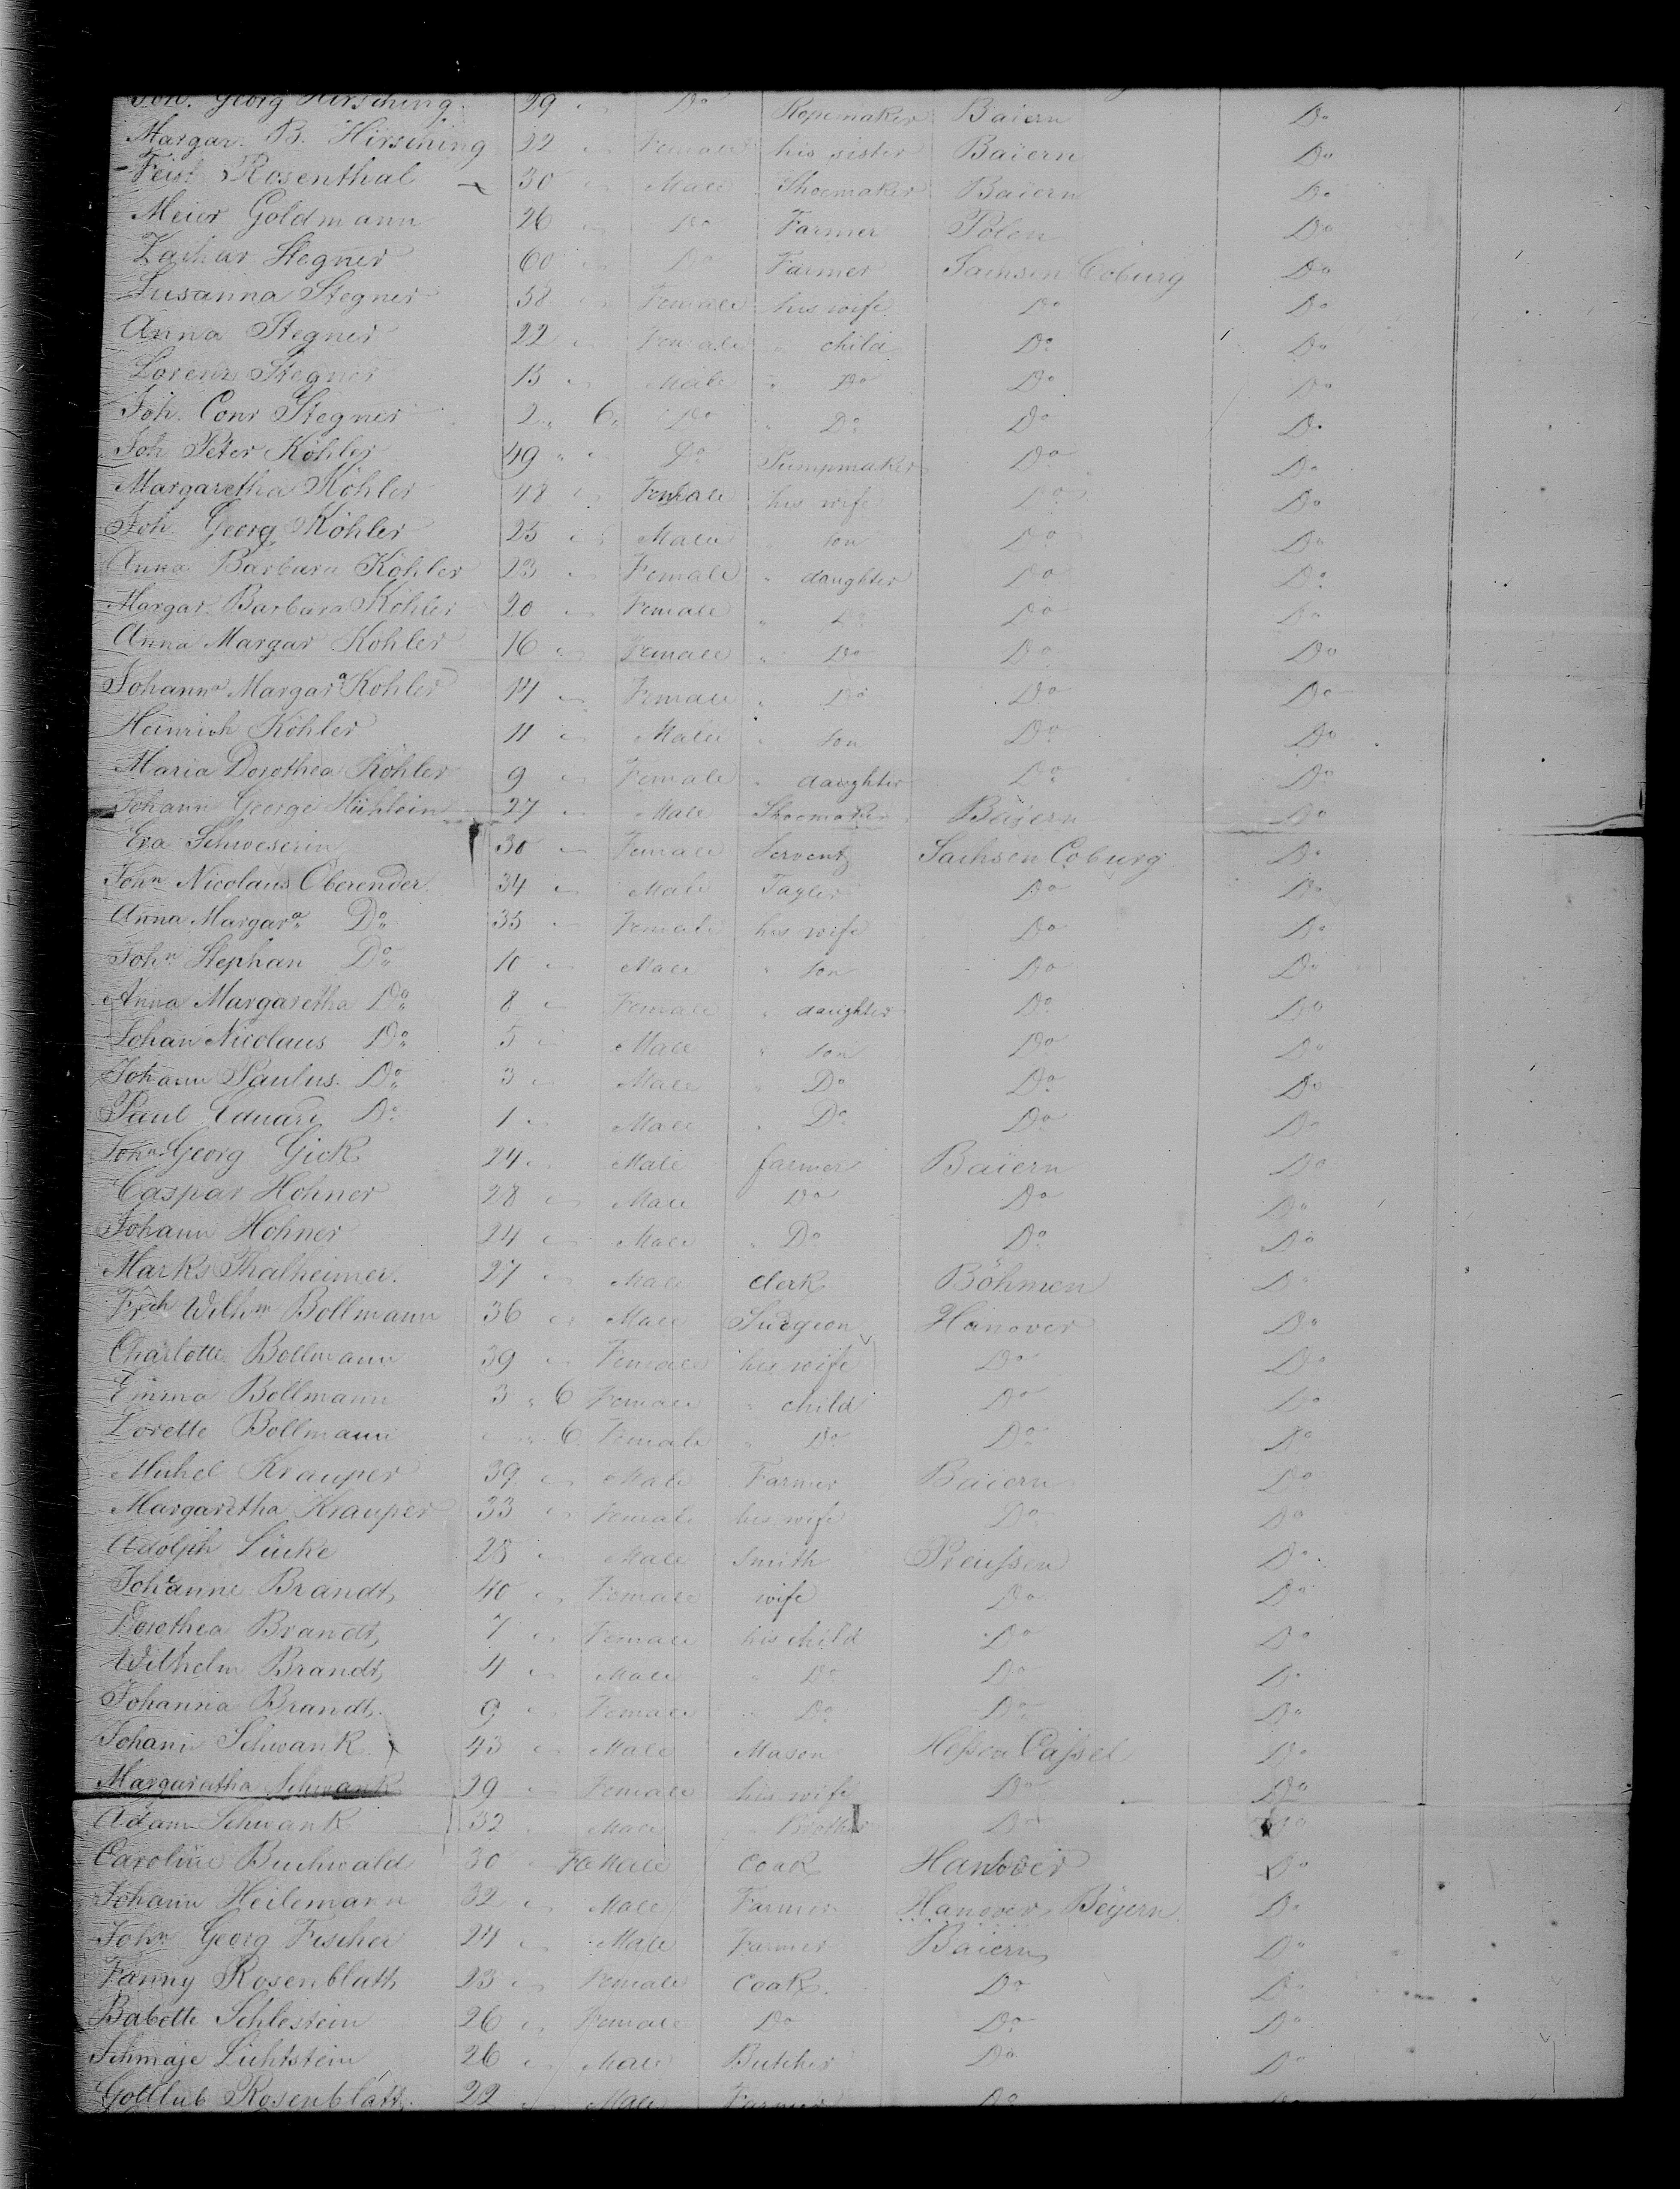 Joh. Georg Hirsching. 29 " Do Ropemaker Baiern Do
Margar. B. Hirsching 22 " Female his sister Baiern Do
Feist Rosenthal 30 " Male Shoemaker Baiern Do
Meier Goldmann 26 " Do Farmer Polen Do
Zachar Stegner 60 " Do Farmer Sachsen Coburg Do
Susanna Stegner 38 " Female his wife Do Do
Anna Stegner 22 " Female " child Do Do
Lorenz Stegner 15 " Male " Do Do Do
Joh. Conr Stegner 2 " 6 " Do " Do Do Do
Joh Peter Köhler 49 " " Do Pumpmaker Do Do
Margaretha Köhler 48 " Female his wife Do Do
Joh. Georg Köhler 25 " Male " son Do Do
Anna Barbara Köhler 23 " Female " daughter Do Do
Margar. Barbara Köhler 20 " Female " Do Do Do
Anna Margar Kohler 16 " Female " Do Do Do
Johanna Margara Kohler 14 " Female " Do Do Do
Heinrich Köhler 11 " Male " son Do Do
Maria Dorothea Köhler 9 " Female " daughter Do Do
Johann George 27 " Male Shoemaker Baiern Do
Eva Schweserin 30 " Female Servent Sachsen Coburg Do
John Nicolaus Oberender 34 " Male Tayler Do Do
Anna Margara Do 35 " Female his wife Do Do
John Stephan Do 10 " Male " son Do Do
Anna Margaretha Do 8 " Female " daughter Do Do
Johan Nicolaus Do 5 " Male " son Do Do
Johann Paulus. Do 3 " Male " Do Do Do
Paul Eduard Do 1 " Male " Do Do Do
John Georg Gick 24 " Male farmer Baiern Do
Caspar Hohner 28 " Male Do Do Do
Johann Hohner 24 " Male " Do Do Do
Marks Thalheimer. 27 " Male clerk Böhmen Do
Frdh Wilhm Bollmann 36 " Male Surgeon Hanover Do
Charlotte Bollmann 39 " Female his wife Do Do
Emma Bollmann 3 " 6 Female " child Do Do
Lorette Bollmann " " 6 Female " Do Do Do
Michel Krauper 39 " Male Farmer Baiern Do
Margaretha Krauper 33 " Female his wife Do Do
Adolph Lücke 28 " Male Smith Preußen Do
Johanne Brandt, 40 " Female wife Do Do
Dorothea Brandt, 7 " Female his child Do Do
Wilhelm Brandt, 4 " Male " Do Do Do
Johanna Brandt. 9 " Female " Do Do Do
Johann Schwank 43 " Male Mason Heßen Caßel Do
Margaratha Schwank 29 " Female his wife Do Do
Adam Schwank 32 " Male " Brother Do Do
Caroline Buchwald 30 " FeMale Coak Hanover Do
Johann Heilemann 32 " Male Farmer Hanover Beyern Do
John Georg Fischer 24 " Male Farmer Baiern Do
Fanny Rosenblatt 23 " Female Coak. Do Do
Babette Schlestein 26 " Female Do Do Do
Schmaje Lichtstein 26 " Male Butcher Do Do
Gottlieb Rosenblatt. 22 " Male Farmer Do Do